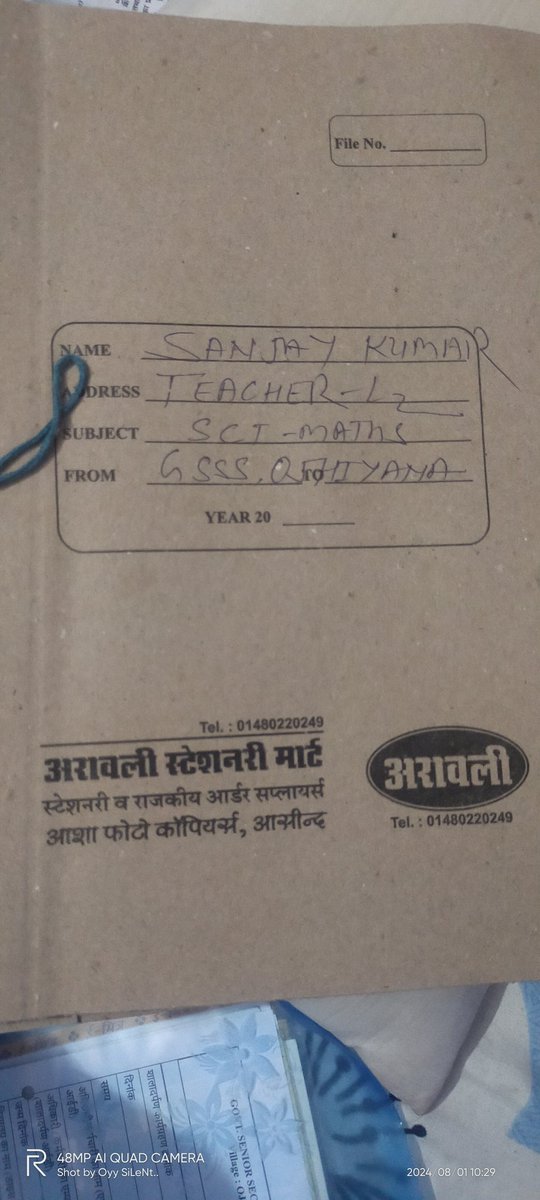 File No.
NAME SANJAY KUMAR
ADDRESS TEACHER-L2
SUBJECT SCI-MATHS
FROM GSSS, TO
YEAR 20
Tel. : 01480220249
अरावली स्टेशनरी मार्ट
स्टेशनरी व राजकीय आर्डर सप्लायर्स
आशा फोटो कॉपियर्स, आसीन्द
अरावली
Tel. : 01480220249
GOVT. SENIOR SEC
Village :
दिनांक
समय
48MP AI QUAD CAMERA
Shot by Oyy SiLeNt..
2024 08/01 10:29